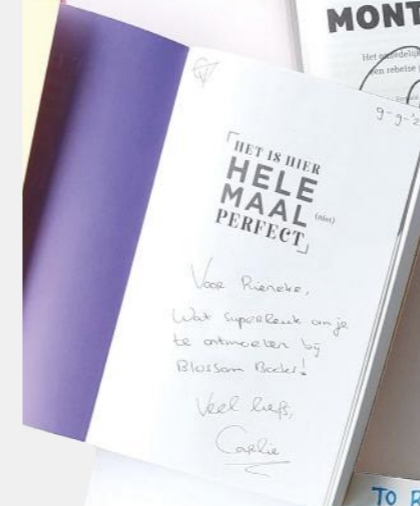 MONT
Het
een rebelse
9-9-'2
HET IS HIER
HELE
MAAL (niet)
PERFECT
Voor Rieneke,
Wat superleuk om je
te ontmoeten bij
Blossom Books!
Veel liefs,
Carlie
TO R